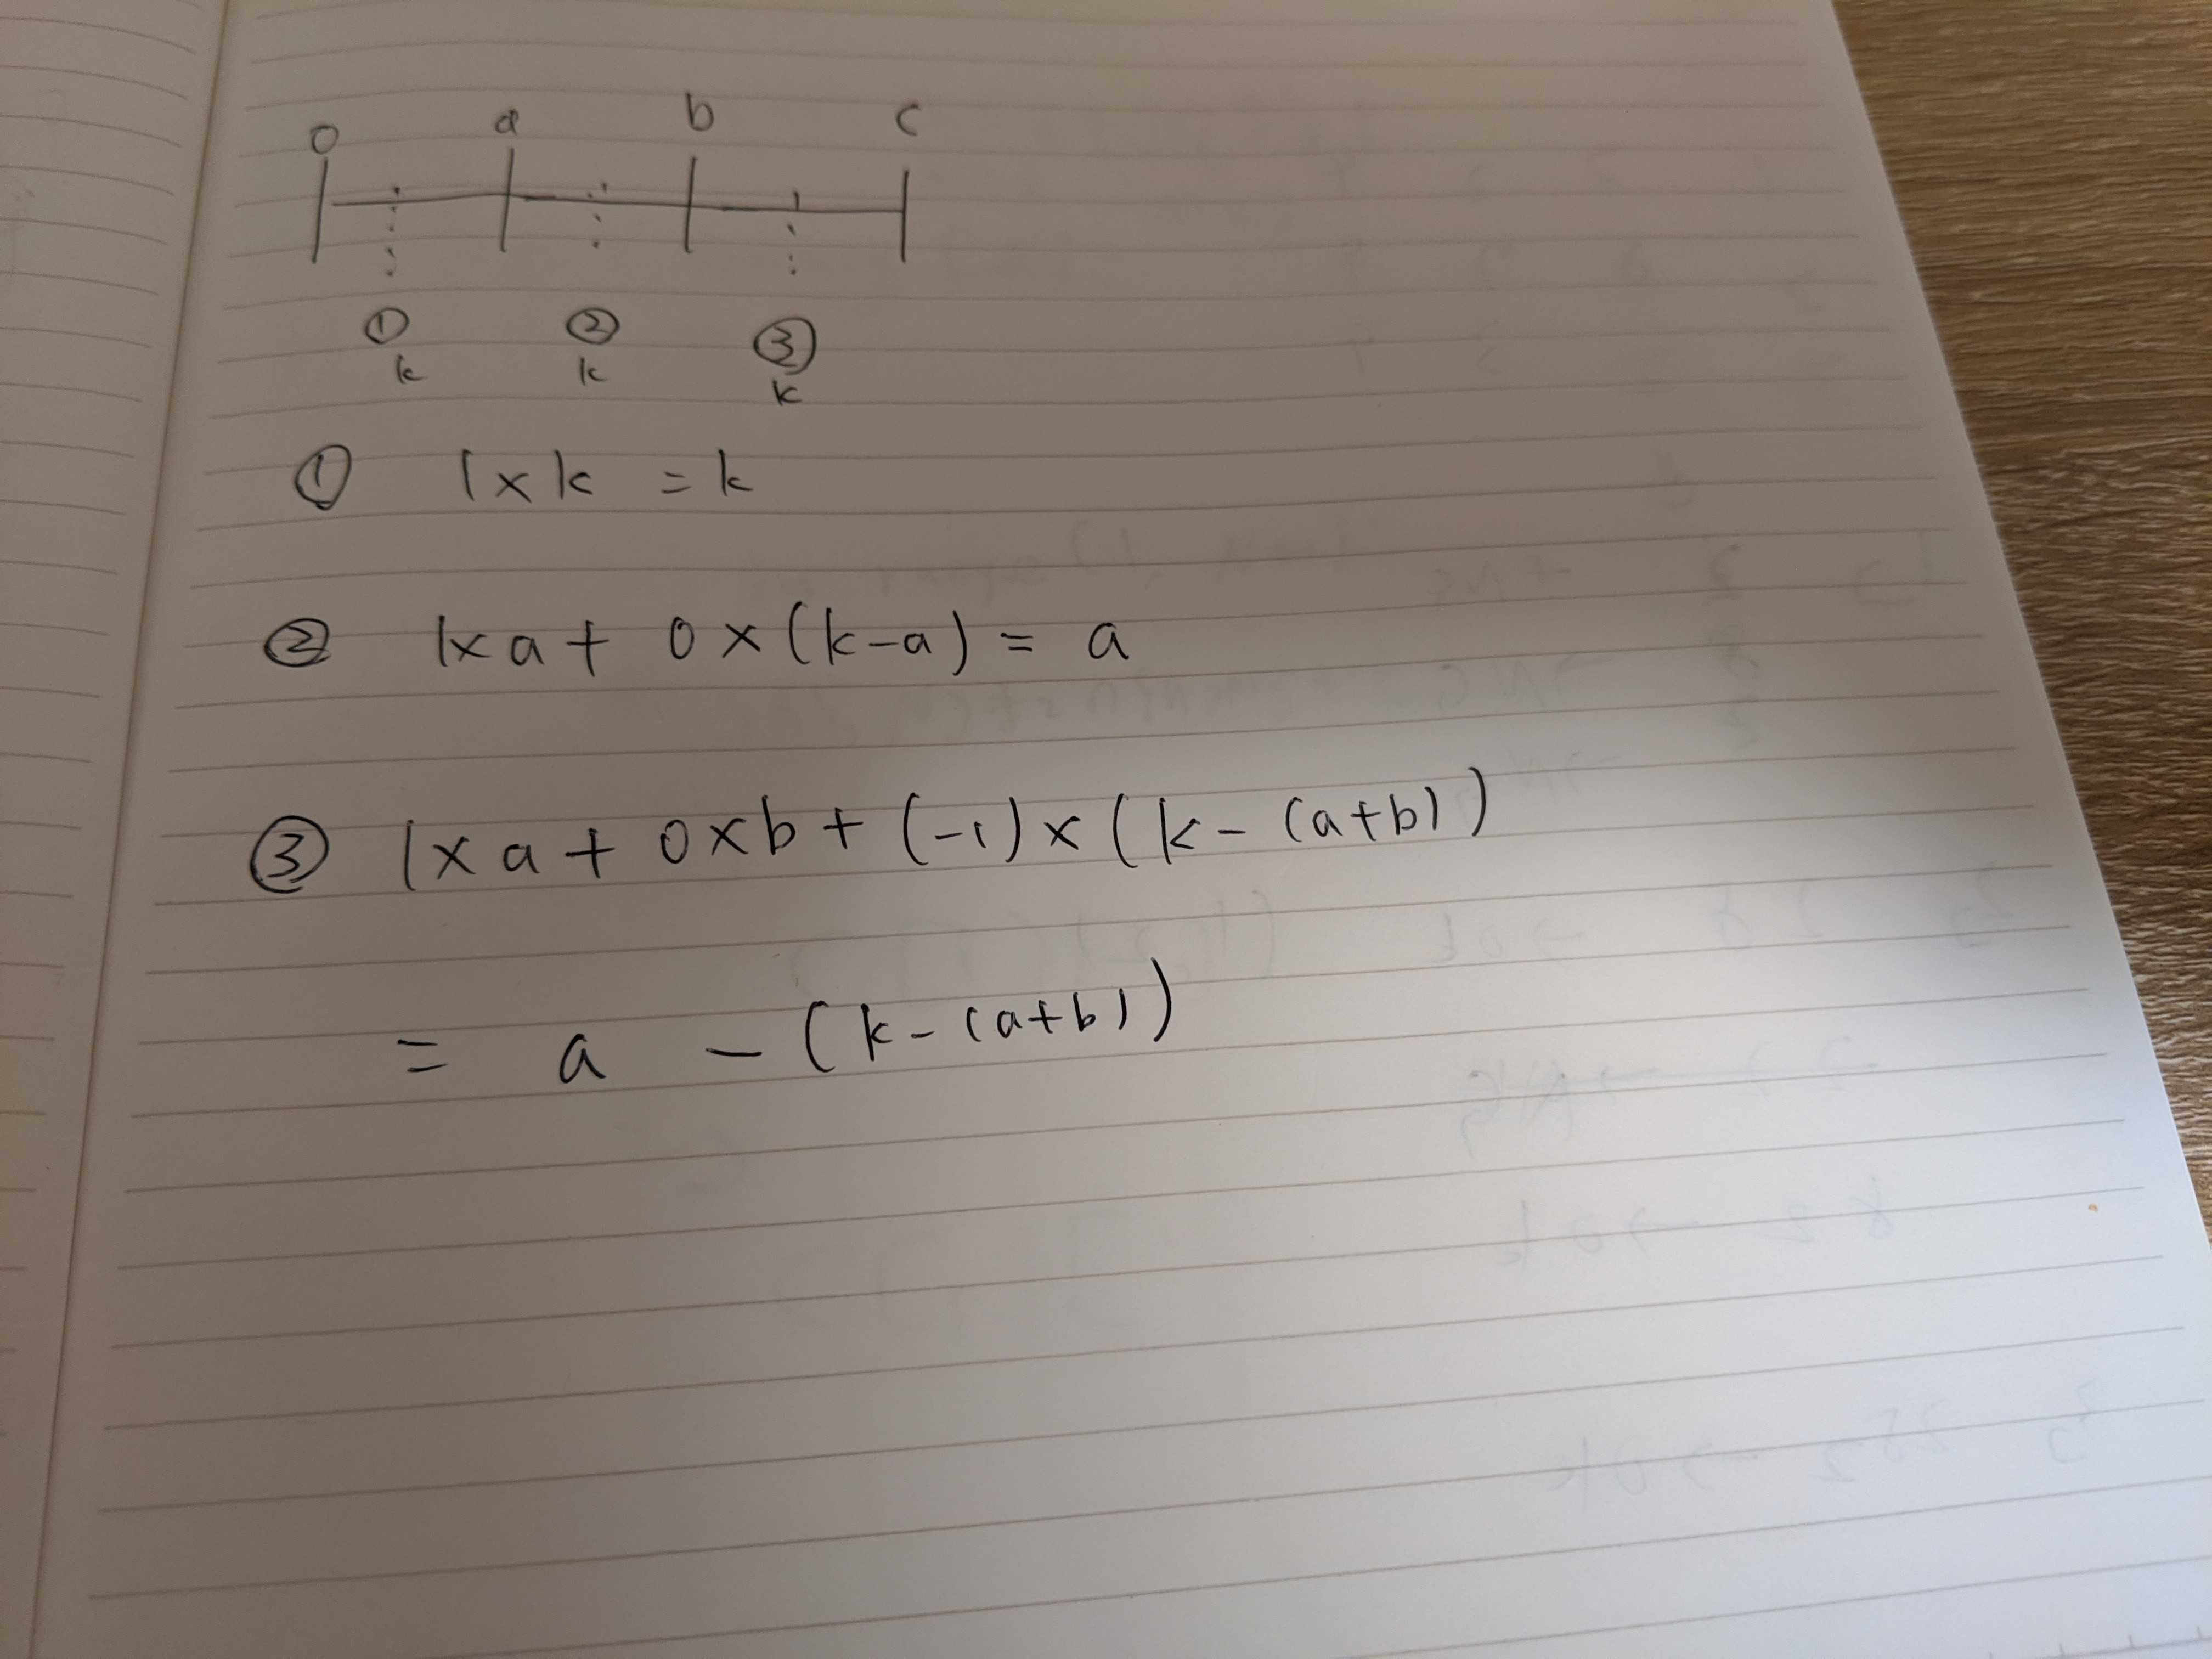 0 a b c
① ② ③
k k k
① 1×k = k
② 1×a + 0×(k-a) = a
③ 1×a + 0×b + (-1)×(k-(a+b))
= a - (k-(a+b))